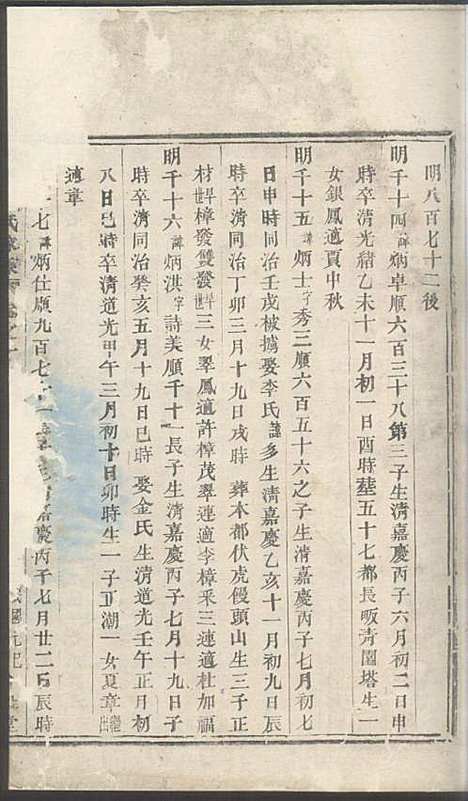 明八百七十二後
明千十四諱炳卓順六百三十八第三子生清嘉慶丙子六月初二日申
時卒清光緒乙未十一月初一日酉時塟五十七都長畈青園塔生一
女銀鳳適賈中秋
明千十五諱炳士字秀三順六百五十六之子生清嘉慶丙子七月初七
日申時同治壬戌被擄娶李氏諱多生清嘉慶乙亥十一月初九日辰
時卒清同治丁卯三月十九日戌時葬本都伏虎饅頭山生三子正
材世樟發雙發世三女翠鳳適許樟茂翠連適李樟釆三連適杜加福
明千十六諱炳淇字詩美順千十一長子生清嘉慶丙子七月十九日子
時卒清同治癸亥五月十九日巳時娶金氏生清道光壬午正月初
八日巳時卒清道光甲午三月初十日卯時生一子正湖一女夏章
適章
十七諱炳仕順九百七十一嘉慶丙子七月廿二日辰時